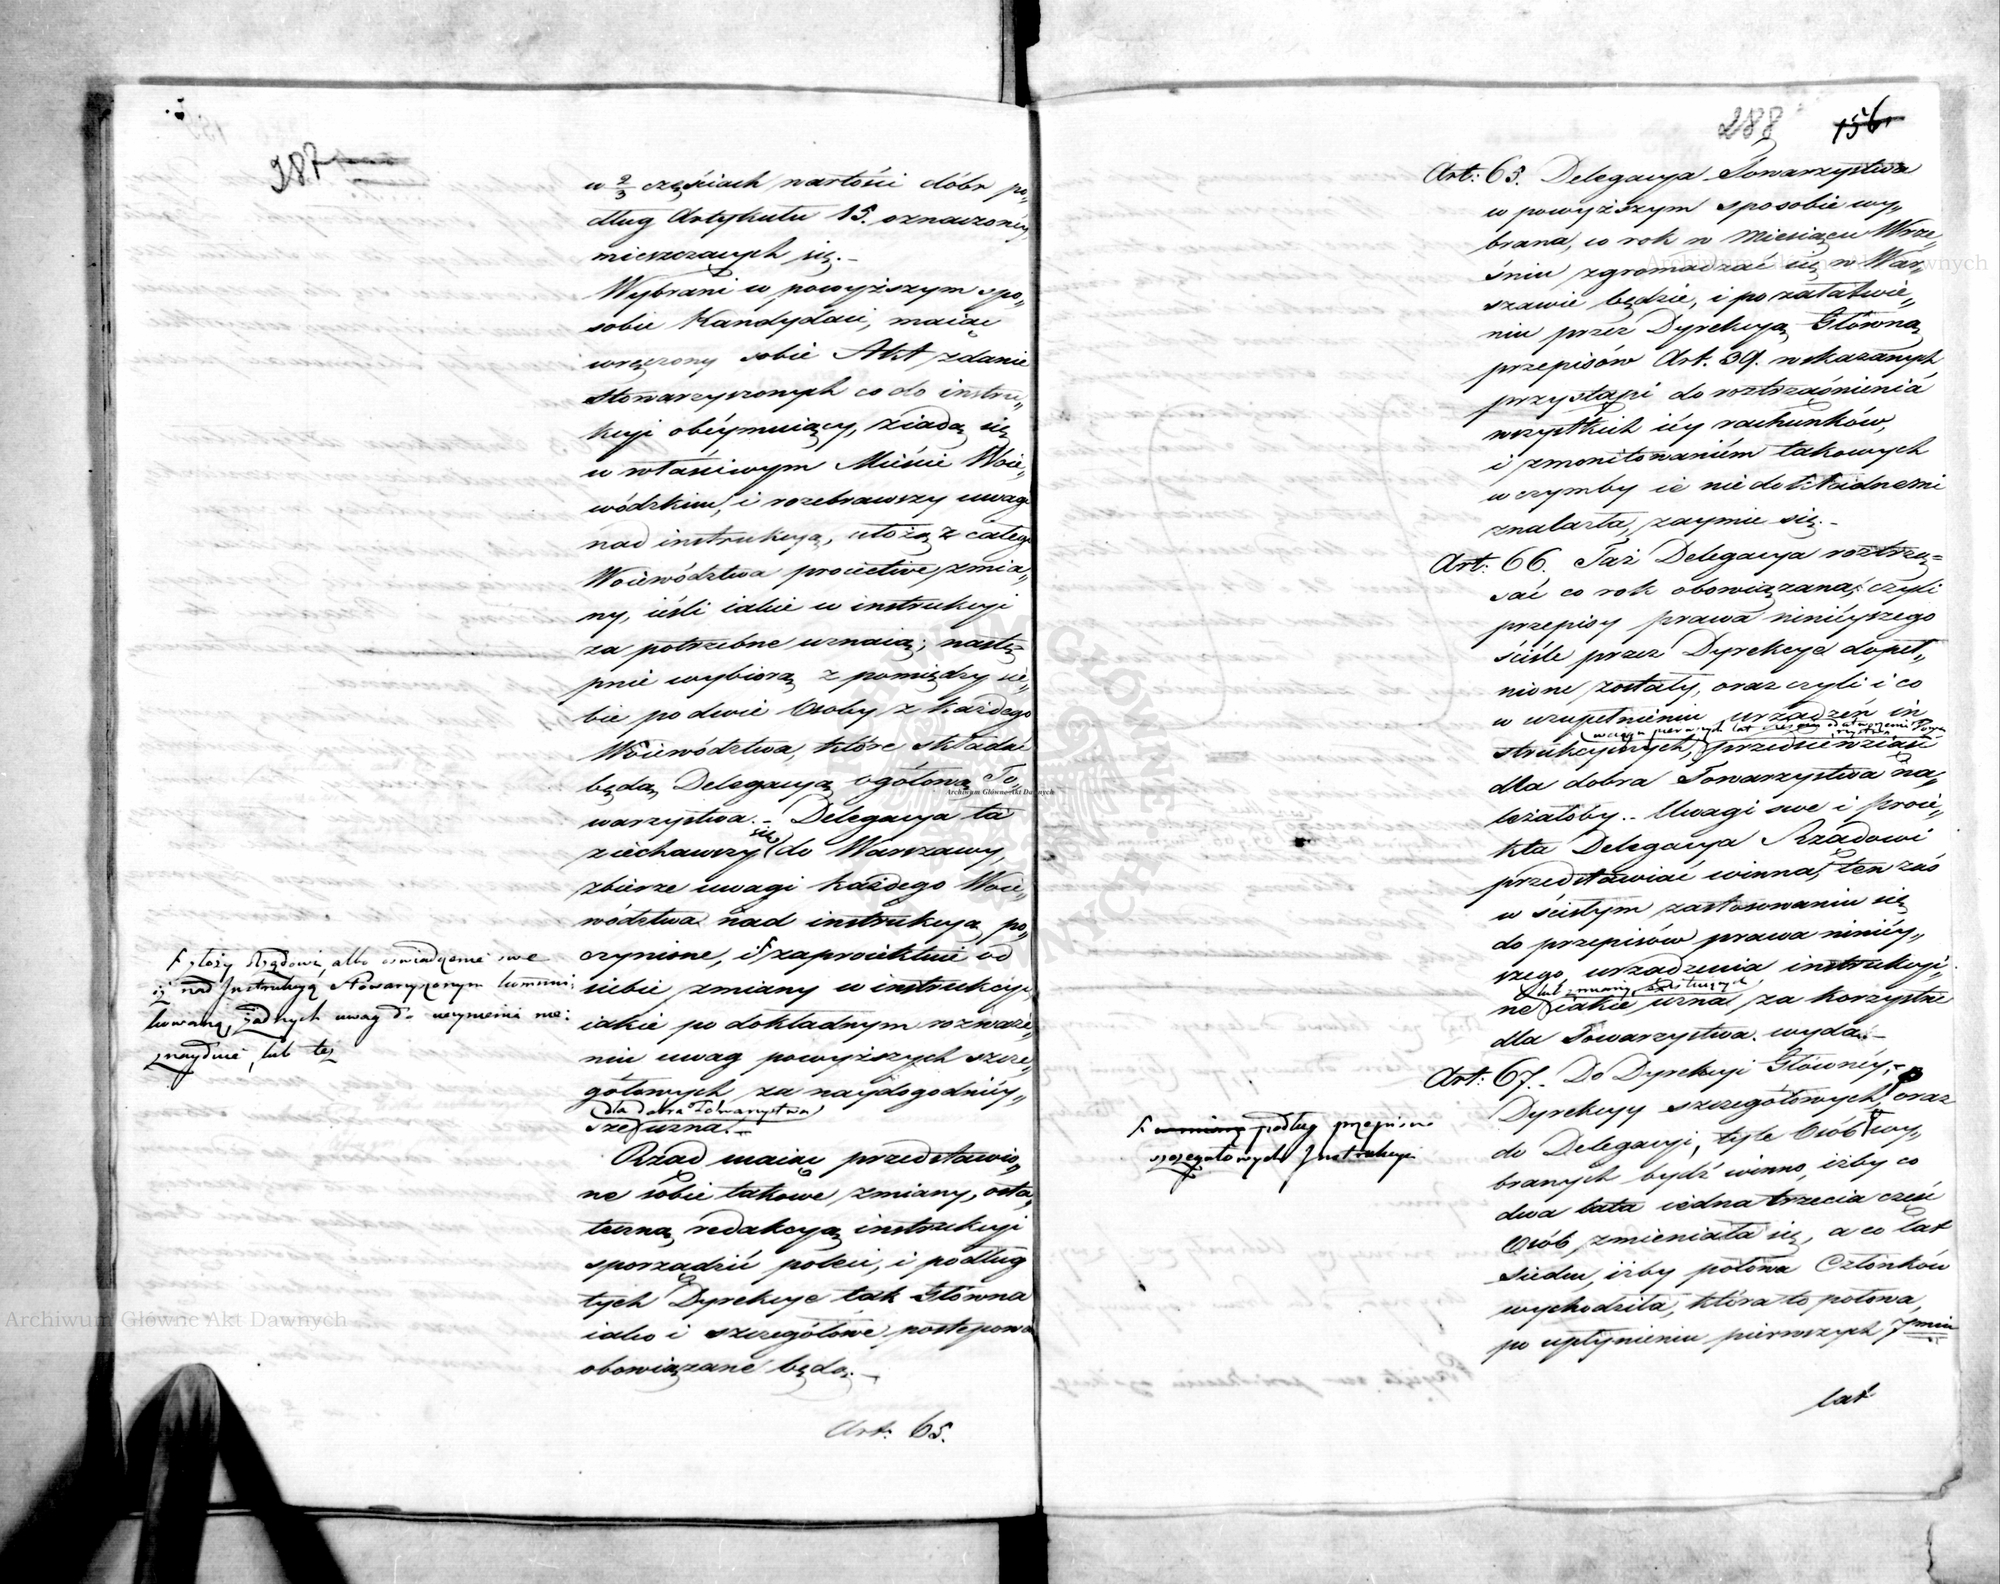 287
w 2/3 częściach wartości dóbr po„
dług Artykułu 15. oznaczonéy
mieszczących się.–
Wybrani w powyższym spo„
sobie Kandydaci, maiąc
wręczony sobie Akt zdanie
Stowarzyszonych co do instru„
kcyi obéymuiący, ziadą się
w właściwym Mieście Woie„
wódzkim, i rozebrawszy uwagi
nad instrukcyą, ułożą z całego
Województwa proiective zmia„
ny, ieśli iakie w instrukcyi
za potrzebne uznaią; nastę=
pnie wybiorą z pomiędzy sie„
bie po dwie Osoby z każdego
Województwa, które składać
będą Delegacyą ogólową To„
warzystwa.– Delegacya ta
ziechawszy się do Warszawy,
zbierze uwagi każdego Woie„
wództwa nad instrukcyą po„
czynione, i F zaproiektuie od
siebie zmiany w instrukcyi
iakie po dokładnym rozważe„
niu uwag powyższych szcze„
gółowych za naydogodniéy„
(dla dobra Towarzystwa)
sze uzna.–
Rząd maiąc przedstawio„
ne sobie takowe zmiany, osta„
teczną redakcyą instrukcyi
sporządzić poleci, i podług
tych Dyrekcye tak Główna
iako i szczegółowe postępować
obowiązane będą.–
Art: 65.
F złoży Rządowi albo oświadczenie swe
iż nad Instrukcyą Stowarzyszonym kommuni„
kowaną, żadnych uwag do uczynienia nie„
znayduie, lub też
288 156
Art: 65. Delegacya Towarzystwa
w powyższym sposobie wy„
brana, co rok w Miesiącu Wrze„
śniu zgromadzać się w War„
szawie będzie, i po załatwie„
niu przez Dyrekcyą Główną
przepisów Art. 39. wskazanych
przystąpi do roztrząśnienia
wszystkich iéy rachunków,
i zmonitowaniem takowych
w czymby ie niedokładnemi
znalazła, zaymie się.–
Art: 66. Taż Delegacya roztrzą=
sać co rok obowiązana, czyli
przepisy prawa ninieyszego
ściśle przez Dyrekcye dopeł„
nione zostały, oraz czyli i co
w uzupełnieniu urządzeń in
(w ciągu pierwszych lat od utworzenia Towa
rzystwa)
strukcyinych, przedsięwziąść
dla dobra Towarzystwa na„
leżałoby.– Uwagi swe i proie„
kta Delegacya Rządowi
przedstawiać winna, ten zaś
w ścisłym zastosowaniu się
do przepisów prawa niniéy„
szego, urządzenia instrukcyi„
(lub zmiany
ne iakie uzna za korzystne
dla Towarzystwa wyda.–
Art: 67.– Do Dyrekcyi Głównéy,
Dyrekcyy szczegółowych, oraz
do Delegacyi, tyle Osób F wy„
branych bydź winno, iżby co
dwa lata iedna trzecia część
Osób zmieniała się, a co lat
siedm, iżby połowa Członków
wychodziła, która to połowa,
po upłynieniu pierwszych,
lat
F podług przepisów
szczegółowych Instrukcyi
Archiwum Główne Akt Dawnych
Archiwum Główne Akt Dawnych
Archiwum Główne Akt Dawnych